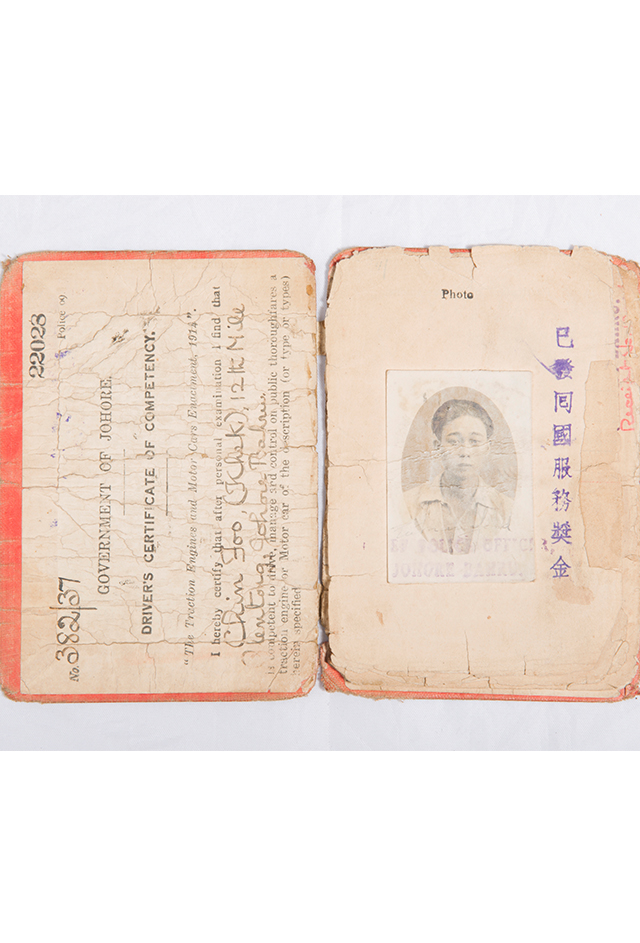 22023
No. 382/37
Police 09
GOVERNMENT OF JOHORE.
DRIVER'S CERTIFICATE OF COMPETENCY.
"The Traction Engines and Motor Cars Enactment, 1914".
I hereby certify that after personal examination I find that
Chin Foo, (Khek), 12th Mile
Plentong, Johore Bahru.
is competent to drive, manage and control on public thoroughfares a
traction engine or Motor car of the description (or type or types)
herein specified
Photo
POLICE OFFICE
JOHORE BAHRU
已發囘國服務獎金